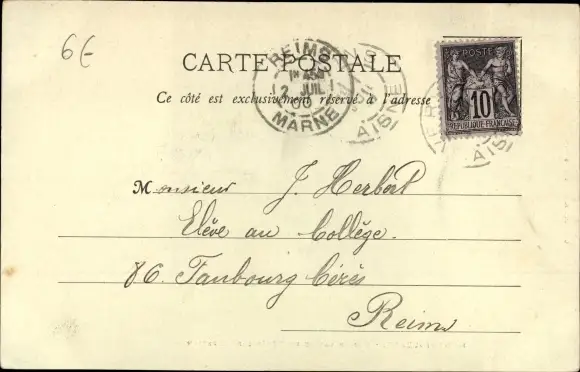 6€
CARTE POSTALE
Ce côté est exclusivement réservé à l'adresse
REIMS
2 JUIL
MARNE
AISNE
POSTE
10
REPUBLIQUE FRANCAISE
AISNE
Monsieur J. Herbert
Elève au Collège.
86. Faubourg Cérès
Reims